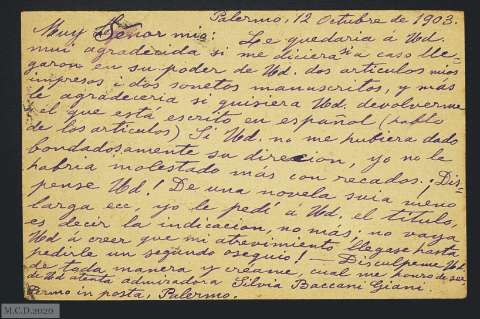 Palermo, 12 Octubre de 1903.
Muy Señor mio: Le quedaria á Ud.
mui agradecida si me diciera si a caso lle-
garon en su poder de Ud. dos articulos mios
impresos i dos sonetos manuscritos, y más
le agradeceria si quisiera Ud. devolverme
el que está escrito en español (hablo
de los articulos) Si Ud. no me hubiera dado
bondadosamente su direcion, yo no le
habria molestado más con recados. ¡Dis-
pense Ud! De una novela suia meno
larga ecc, yo le pedí á Ud. el título,
es decir la indicacion, no más; no vaya
Ud á creer que mi atrevimiento llegase hasta
pedirle un segundo oseguio! — Disculpeme Ud.
de toda manera y créame, cual me honro de ser,
de Ud atenta admiradora Silvia Baccani Giani
Fermo in posta, Palermo.
M.C.D.2020